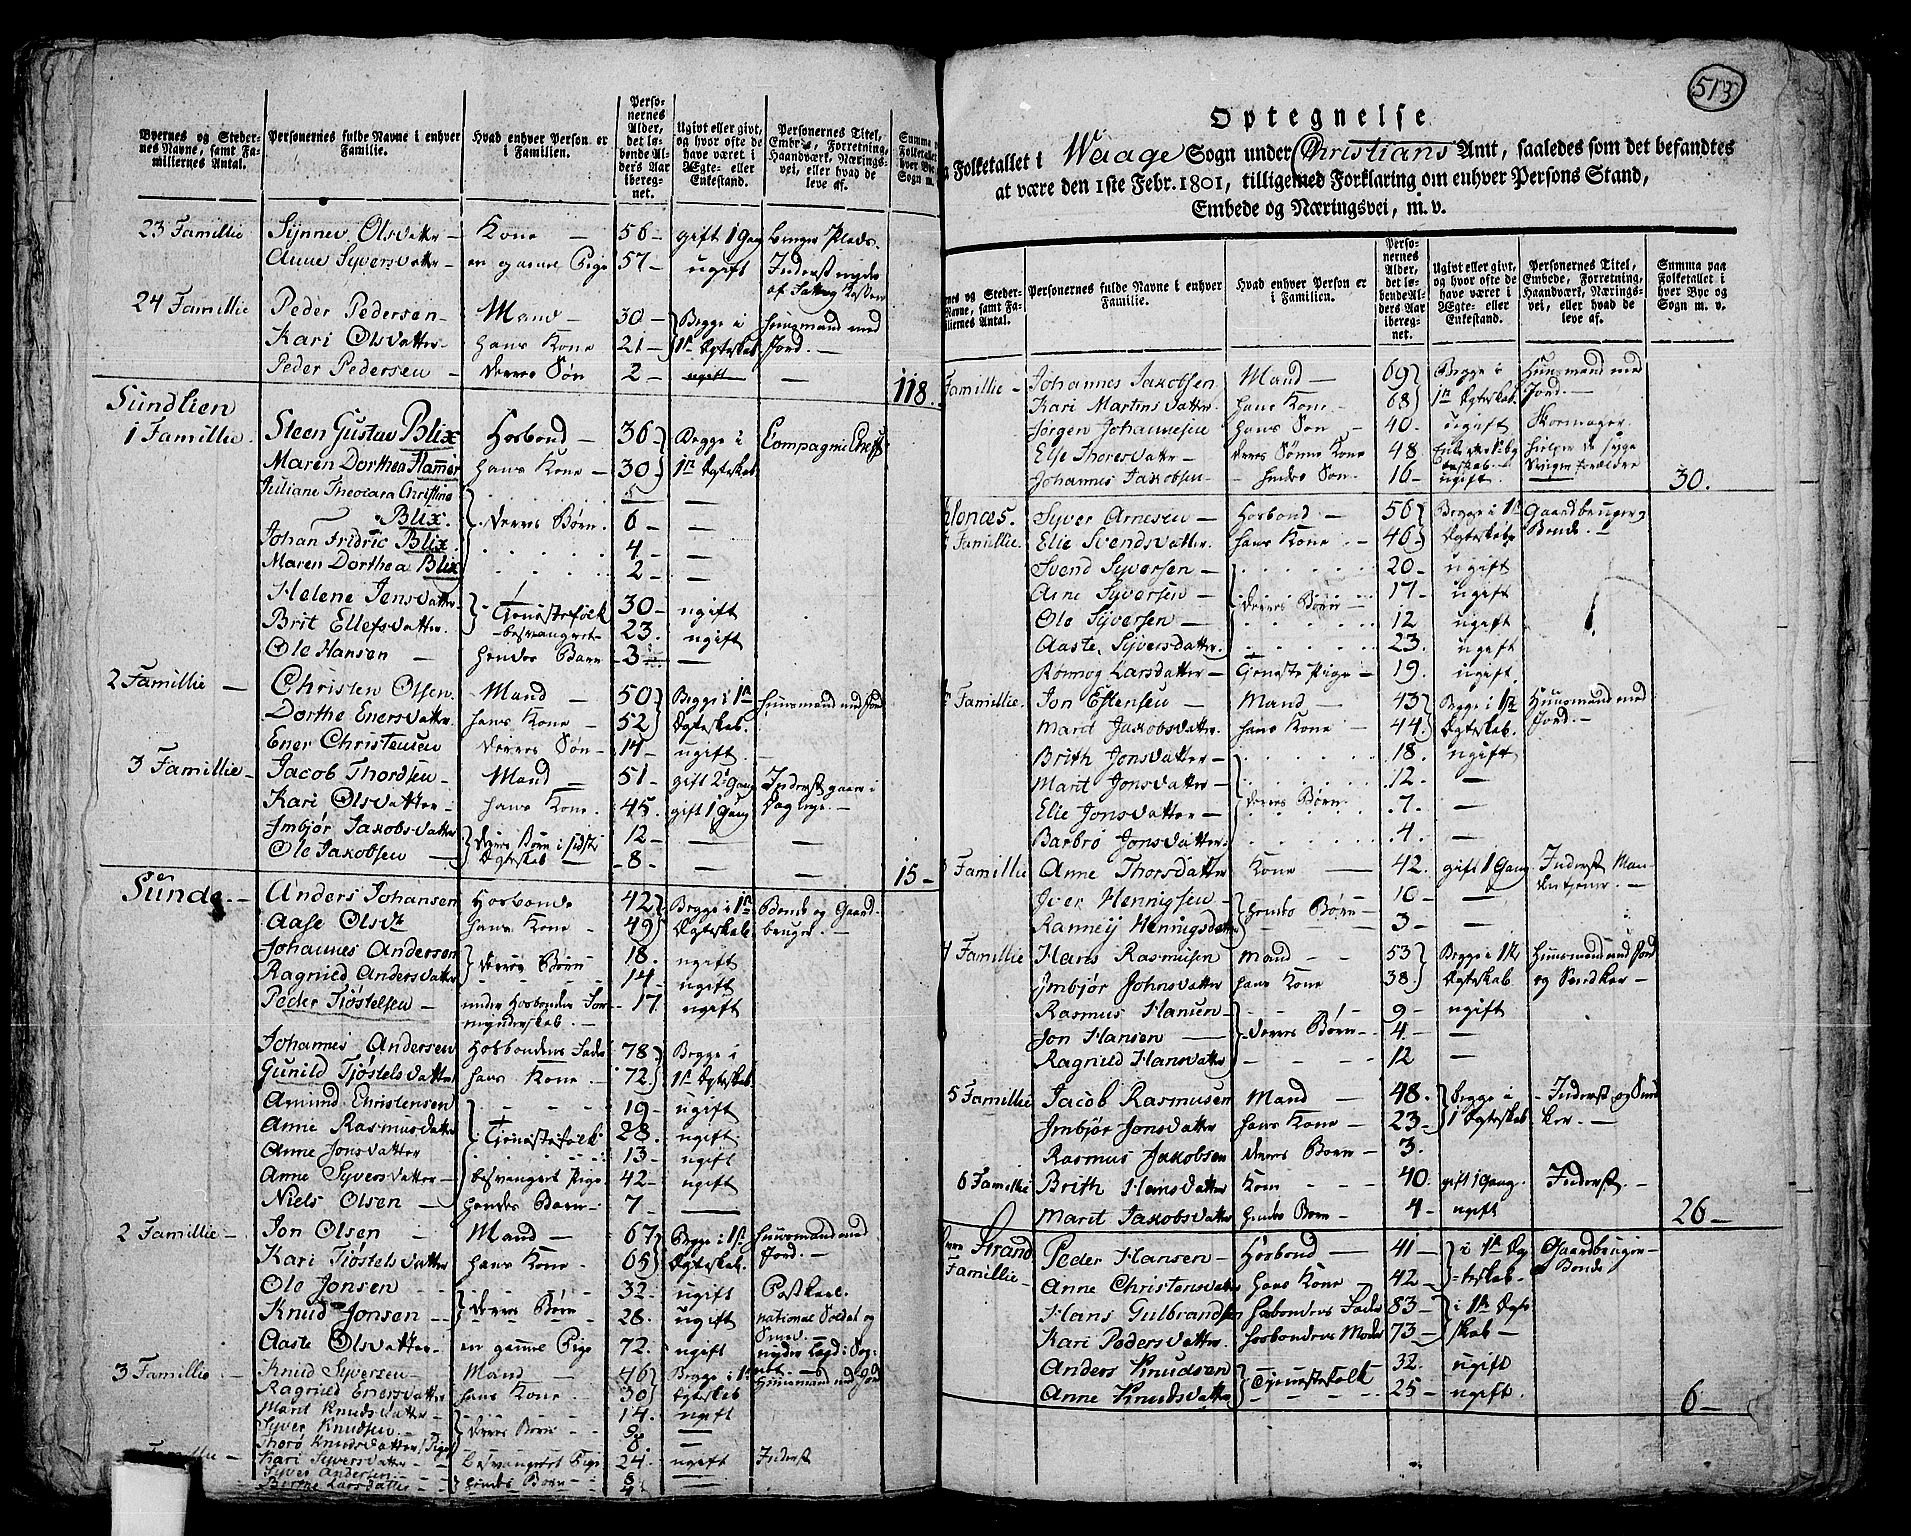 Byernes og Steder-
nes Navne, samt Fa-
miliernes Antal.
Personernes fulde Navne i enhver
Familie.
Hvad enhver Person er
i Familien.
Perso-
nernes
Alder,
det lø-
bende Al-
ders Aar
ibereg-
net.
Ugivt eller givt,
og hvor ofte de
have været i
Ægte- eller
Enkestand.
Personernes Titel,
Embede, Forretning,
Haandværk, Nærings-
vei, eller hvad de
leve af.
Summa
Folketallet
hver By
Sogn m.
23 Famillie Synnev Olsdatter Kone 56 gift 1 Gang
Anne Syversdatter en gamel Pige 57 ugift Inderst nyder
24 Famillie Peder Pedersen Mand 30 Begge i Huusmand med
Kari Olsdatter hans Kone 21 1te Egteskab Jord.
Peder Pedersen deres Søn 2 ugift
118.
Sundlien
1 Famillie Steen Gustav Blix Hosbond 36 Begge i Compagnie Chef
Maren Dorthea Hammer hans Kone 30 1te Egteskab
Juliane Theodara Christine 5
Blix. deres Børn 6
Johan Fridric Blix 4
Maren Dorthea Blix 2
Helene Jensdatter Tjenistefolk 30 ugift
Brit Ellefsdatter besvangret 23. ugift
Ole Hansen hendes Barn 3
2 Famillie Christen Olsen Mand 50 Begge i 1te Huusmand med Jord
Dorthe Enersdatter hans Kone 52 Egteskab.
Ener Christensen deres Søn 14 ugift
3 Famillie Jacob Thordsen Mand 51 gift 2 Gang Inderst gaar i
Kari Olsdatter hans Kone 45. gift 1 Gang Dagleye.
Jmbjør Jakobsdatter deres Børn i sidste 12
Ole Jakobsen Egteskab 8
15
Sunde. Anders Johansen Hosbonde 42 Begge i 1te Bonde og Gaard-
Aase Olsdr hans Kone 49 Egteskab bruger.
Johannes Andersen deres Børn 18. ugift
Ragnild Andersdatter 14 ugift
Peder Tjøstelsen under Hosbondens For- 17 ugift
mynderskab.
Johannes Andersen Hosbondens Fader 78 Begge i
Gunild Tjøstelsdatter hans Kone 72 1te Egteskab
Amund Christensen 19 ugift
Anne Rasmusdatter Tjenistefolk 28. ugift
Anne Jonsdatter 13 ugift
Anne Syversdatter besvangert Pige 42 ugift
Niels Olsen hendes Barn 7
2 Famillie Jon Olsen Mand 67 Begge i 1te Huusmand med
Kari Tjøstelsdatter hans Kone 65 Egteskab. Jord.
Ole Jonsen 32. ugift Postkarl.
Knud Jonsen deres Børn 28. ugift national Soldat og
Aaste Olsdatter en gammel Pige 72. ugift nyder Lægd i Sog-
3 Famillie Knud Syversen Mand 46 Begge i 1te Huusmand med Jord
Ragnild Enersdatter hans Kone 30 Egteskab
Marit Knudsdatter 14. ugift
Syver Knudsen deres Børn 9
Thorø Knudsdatter Pige 8
Famillie Kari Syversdatter besvangret Pige 24 ugift Inderst
Syver Andersen 8
Birthe Larsdatter hendes Børn
513
Optegnelse
Folketallet i Waage Sogn under Christians Amt, saaledes som det befandtes
at være den 1ste Febr. 1801, tilligemed Forklaring om enhver Persons Stand,
Embede og Næringsvei, m. v.
nes og Steder-
Navne, samt Fa-
iliernes Antal.
Personernes fulde Navne i enhver
Familie.
Hvad enhver Person er
i Familien.
Perso-
nernes
Alder,
det lø-
bende Al-
ders Aar
ibereg-
net.
Ugivt eller givt,
og hvor ofte de
have været i
Ægte- eller
Enkestand.
Personernes Titel,
Embede, Forretning,
Haandværk, Nærings-
vei, eller hvad de
leve af.
Summa paa
Folketallet i
hver Bye og
Sogn m. v.
Famillie Johannes Jakobsen Mand 69 Begge i Huusmand med
Kari Martinsdatter hans Kone 68 1te Egteskab. Jord.
Jørgen Johannesen hans Søn 40. ugift Skomager.
Else Thoresdatter deres Sønne Kone 48 hielper de syge
Johannes Jakobsen hendes Søn 16 ugift.
30.
Syver Arnesen Hosbond 56 Begge i 1te Gaardbruger og
Famillie. Elie Svendsdatter. hans Kone 46 Egteskab Bonde.
Svend Syversen 20 ugift
Arne Syversen 17 ugift
Ole Syversen deres Børn 12 ugift
Aaste Syversdatter. 23. ugift
Ronnog Larsdatter Tjeniste Pige 19. ugift
Famillie. Jon Estensen Mand 43 Begge i 1te Huusmand med
Marit Jakobsdatter. hans Kone 44. Egteskab. Jord.
Brith Jonsdatter 18. ugift
Marit Jonsdatter 12.
Elie Jonsdatter deres Børn 7.
Barbrø Jonsdatter. 4.
Famillie Anne Thorsdatter Kone 42. gift 1 Gang Inderst Man-
Iver Hennigsen hendes Børn 10
Ranneij Henningsdatter 3
4 Famillie Hans Rasmusen Mand 53 Begge i 1te Huusmand med Jord
Jmbjør Johnsdatter hans Kone 38. Egteskab og Snedker
Rasmus Hansen 9 ugift
Jon Hansen deres Børn 4
Ragnild Hansdatter 12
5 Famillie Jacob Rasmusen Mand 48. Begge i Inderst og Sned
Jmbjør Jonsdatter hans Kone 23 1 Egteskab ker.
Rasmus Jakobsen deres Børn 3.
6 Famillie Brith Hansdatter Kone 40. gift 1 Gang. Inderst.
Marit Jakobsdatter hendes Børn 4 ugift
26
Strand Peder Hansen Hosbond 41 i 1te Eg Gaardbruger
Famillie Anne Christensdatter hans Kone 42 teskab Bonde
Hans Gulbrandsen hosbondens Fader 83 i 1te Egte
Kari Pedersdatter. hosbondens Moder 73 skab
Anders Knudsen Tjenistefolk 32. ugift
Anne Knudsdatter 25 ugift.
6